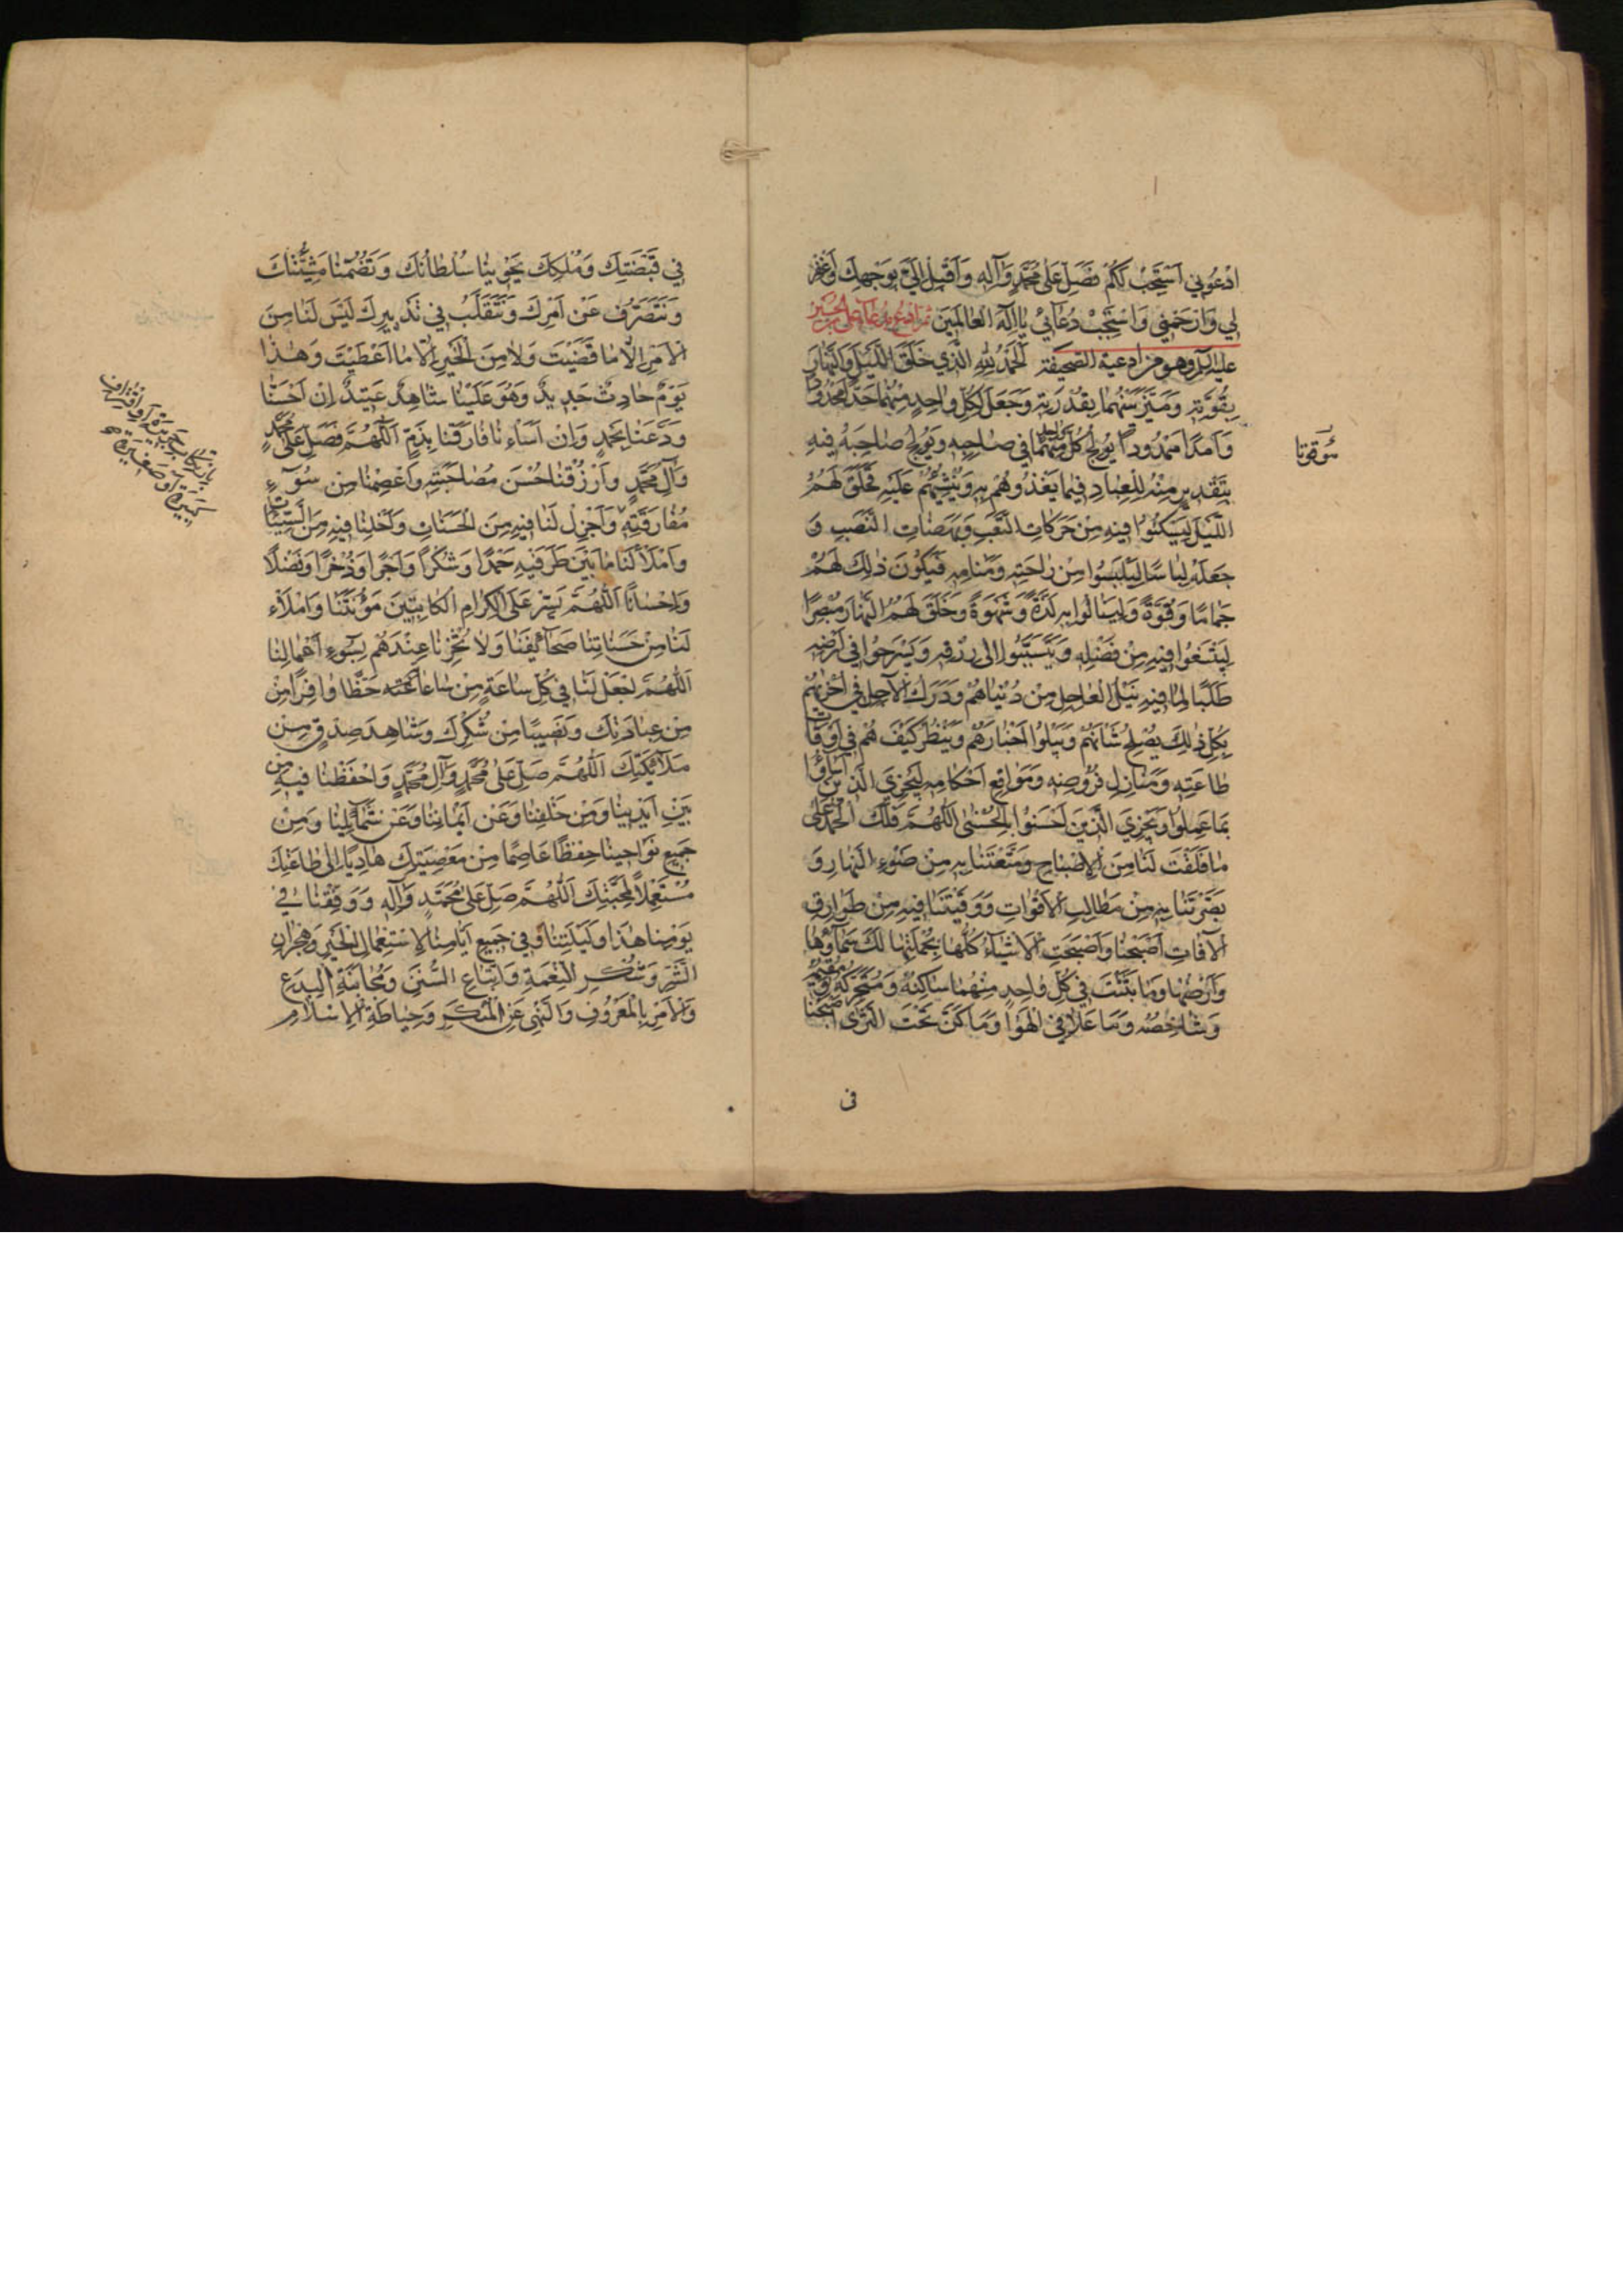 ادْعُونِي اَسْتَجِبْ لَكُمْ فَصَلِّ عَلىٰ مُحَمَّدٍ وَآلِهِ وَاَقْبِلْ اِلَيَّ بِوَجْهِكَ وَاغْفِرْ
لِي وَارْحَمْنِي وَاسْتَجِبْ دُعَائِي يَا اِلٰهَ الْعٰالَمِينَ ثم ادع بدعاء علي بن الحسين
عليه السلم وهو من ادعية الصحيفة اَلْحَمْدُ لِلّٰهِ الَّذِي خَلَقَ اللَّيْلَ وَالنَّهٰارَ
بِقُوَّتِهِ وَمَيَّزَ بَيْنَهُمٰا بِقُدْرَتِهِ وَجَعَلَ لِكُلِّ وٰاحِدٍ مِنْهُمٰا حَدًّا مَحْدُودًا
وَاَمَدًا مَمْدُودًا يُولِجُ كُلَّ وٰاحِدٍ مِنْهُمٰا فِي صٰاحِبِهِ وَيُولِجُ صٰاحِبَهُ فِيهِ
بِتَقْدِيرٍ مِنْهُ لِلْعِبٰادِ فِيمٰا يَغْذُوهُمْ بِهِ وَيُنْشِئُهُمْ عَلَيْهِ فَخَلَقَ لَهُمُ
اللَّيْلَ لِيَسْكُنُوا فِيهِ مِنْ حَرَكٰاتِ التَّعَبِ وَنَهَضٰاتِ النَّصَبِ وَ
جَعَلَهُ لِبٰاسًا لِيَلْبَسُوا مِنْ رٰاحَتِهِ وَمَنٰامِهِ فَيَكُونَ ذٰلِكَ لَهُمْ
جَمٰامًا وَقُوَّةً وَلِيَنٰالُوا بِهِ لَذَّةً وَشَهْوَةً وَخَلَقَ لَهُمُ النَّهٰارَ مُبْصِرًا
لِيَبْتَغُوا فِيهِ مِنْ فَضْلِهِ وَيَتَسَبَّبُوا اِلىٰ رِزْقِهِ وَيَسْرَحُوا فِي اَرْضِهِ
طَلَبًا لِمٰا فِيهِ نَيْلُ الْعٰاجِلِ مِنْ دُنْيٰاهُمْ وَدَرَكُ الْآجِلِ فِي اُخْرٰيهُمْ
بِكُلِّ ذٰلِكَ يُصْلِحُ شَأْنَهُمْ وَيَبْلُوا اَخْبٰارَهُمْ وَيَنْظُرُ كَيْفَ هُمْ فِي اَوْقٰاتِ
طٰاعَتِهِ وَمَنٰازِلِ فُرُوضِهِ وَمَوٰاقِعِ اَحْكٰامِهِ لِيَجْزِيَ الَّذِينَ اَسٰاؤُا
بِمٰا عَمِلُوا وَيَجْزِيَ الَّذِينَ اَحْسَنُوا بِالْحُسْنىٰ اَللّٰهُمَّ فَلَكَ الْحَمْدُ عَلىٰ
مٰا فَلَقْتَ لَنٰا مِنَ الْاِصْبٰاحِ وَمَتَّعْتَنٰا بِهِ مِنْ ضَوْءِ النَّهٰارِ وَ
بَصَّرْتَنٰا بِهِ مِنْ مَطٰالِبِ الْاَقْوٰاتِ وَوَقَيْتَنٰا فِيهِ مِنْ طَوٰارِقِ
الْآفٰاتِ اَصْبَحْنٰا وَاَصْبَحَتِ الْاَشْيٰاءُ كُلُّهٰا بِجُمْلَتِهٰا لَكَ سَمٰاؤُهٰا
وَاَرْضُهٰا وَمٰا بَثَثْتَ فِي كُلِّ وٰاحِدٍ مِنْهُمٰا سٰاكِنُهُ وَمُتَحَرِّكُهُ وَمُقِيمُهُ
وَشٰاخِصُهُ وَمٰا عَلٰا فِي الْهَوٰاءِ وَمٰا كَنَّ تَحْتَ الثَّرىٰ اَصْبَحْنٰا
فى
فِي قَبْضَتِكَ وَمُلْكِكَ يَحْوِينٰا سُلْطٰانُكَ وَتَضُمُّنٰا مَشِيَّتُكَ
وَنَتَصَرَّفُ عَنْ اَمْرِكَ وَنَتَقَلَّبُ فِي تَدْبِيرِكَ لَيْسَ لَنٰا مِنَ
الْاَمْرِ اِلّٰا مٰا قَضَيْتَ وَلٰا مِنَ الْخَيْرِ اِلّٰا مٰا اَعْطَيْتَ وَهٰذٰا
يَوْمٌ حٰادِثٌ جَدِيدٌ وَهُوَ عَلَيْنٰا شٰاهِدٌ عَتِيدٌ اِنْ اَحْسَنّٰا
وَدَّعَنٰا بِحَمْدٍ وَاِنْ اَسَأْنٰا فٰارَقَنٰا بِذَمٍّ اَللّٰهُمَّ فَصَلِّ عَلىٰ مُحَمَّدٍ
وَآلِ مُحَمَّدٍ وَارْزُقْنٰا حُسْنَ مُصٰاحَبَتِهِ وَاعْصِمْنٰا مِنْ سُوءِ
مُفٰارَقَتِهِ وَاَجْزِلْ لَنٰا فِيهِ مِنَ الْحَسَنٰاتِ وَاَخْلِنٰا فِيهِ مِنَ السَّيِّئٰاتِ
وَامْلَأْ لَنٰا مٰا بَيْنَ طَرَفَيْهِ حَمْدًا وَشُكْرًا وَاَجْرًا وَذُخْرًا وَفَضْلًا
وَاِحْسٰانًا اَللّٰهُمَّ يَسِّرْ عَلَى الْكِرٰامِ الْكٰاتِبِينَ مَؤُنَتَنٰا وَامْلَأْ
لَنٰا مِنْ حَسَنٰاتِنٰا صَحٰائِفَنٰا وَلٰا تُخْزِنٰا عِنْدَهُمْ بِسُوءِ اَعْمٰالِنٰا
اَللّٰهُمَّ اجْعَلْ لَنٰا فِي كُلِّ سٰاعَةٍ مِنْ سٰاعٰاتِهِ حَظًّا وٰافِرًا مِنْ
مِنْ عِبٰادَتِكَ وَنَصِيبًا مِنْ شُكْرِكَ وَشٰاهِدَ صِدْقٍ مِنْ
مَلٰائِكَتِكَ اَللّٰهُمَّ صَلِّ عَلىٰ مُحَمَّدٍ وَآلِ مُحَمَّدٍ وَاحْفَظْنٰا فِيهِ مِنْ
بَيْنِ اَيْدِينٰا وَمِنْ خَلْفِنٰا وَعَنْ اَيْمٰانِنٰا وَعَنْ شَمٰائِلِنٰا وَمِنْ
جَمِيعِ نَوٰاحِينٰا حِفْظًا عٰاصِمًا مِنْ مَعْصِيَتِكَ هٰادِيًا اِلىٰ طٰاعَتِكَ
مُسْتَعْمِلًا لِمَحَبَّتِكَ اَللّٰهُمَّ صَلِّ عَلىٰ مُحَمَّدٍ وَآلِهِ وَوَفِّقْنٰا فِي
يَوْمِنٰا هٰذٰا وَلَيْلَتِنٰا وَفِي جَمِيعِ اَيّٰامِنٰا لِاسْتِعْمٰالِ الْخَيْرِ وَهِجْرٰانِ
الشَّرِّ وَشُكْرِ النِّعْمَةِ وَاتِّبٰاعِ السُّنَنِ وَمُجٰانَبَةِ الْبِدَعِ
وَالْاَمْرِ بِالْمَعْرُوفِ وَالنَّهْيِ عَنِ الْمُنْكَرِ وَحِيٰاطَةِ الْاِسْلٰامِ
بِارْتِكٰابِ جَرِيرَةٍ اَوِ اقْتِرٰافِ
كَبِيرَةٍ اَوْ صَغِيرَةٍ